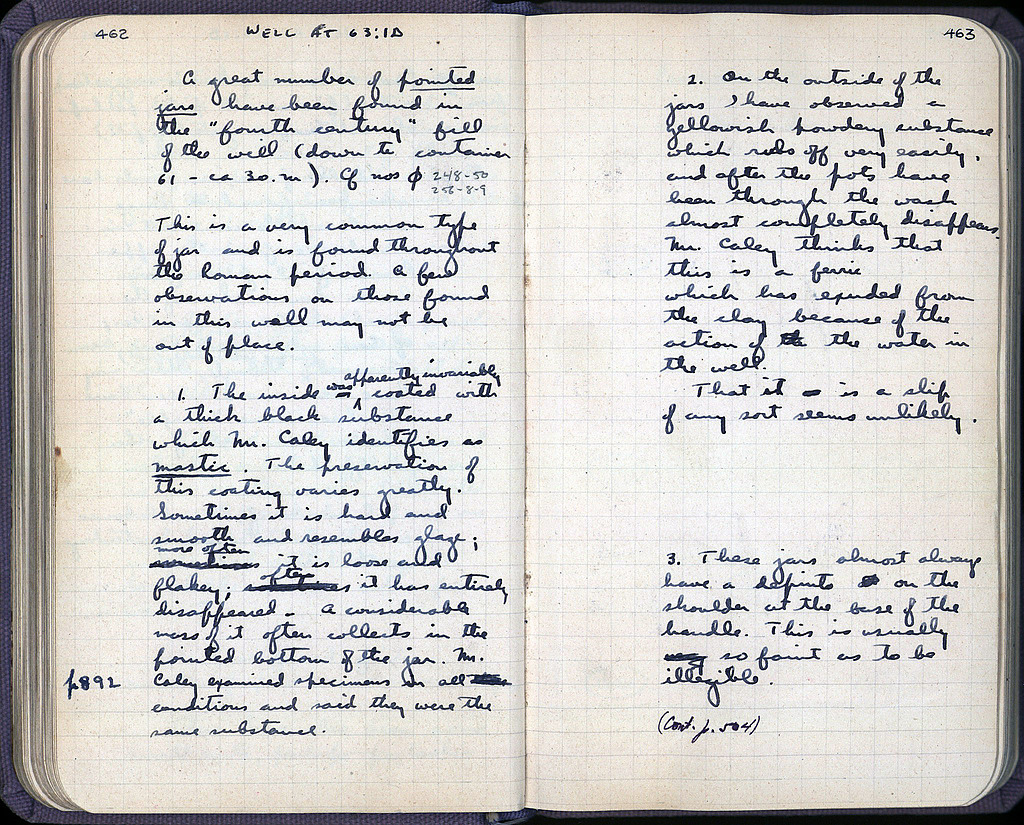 462 WELL AT 63:ID
A great number of pointed
jars have been found in
the "fourth century" fill
of the well (down to container
61 - ca 30.m). Cf nos ϕ 248-50
256-8-9
This is a very common type
of jar and is found throughout
the Roman period. A few
observations on those found
in this well may not be
out of place.
apparently invariably
1. The inside was coated with
a thick black substance
which Mr. Caley identifies as
mastic. The preservation of
this coating varies greatly.
Sometimes it is hard and
smooth and resembles glaze;
more often
sometimes it is loose and
often
flakey; sometimes it has entirely
disappeared - A considerable
mass of it often collects in the
pointed bottom of the jar. Mr.
p892 Caley examined specimens in all
conditions and said they were the
same substance.
463
2. On the outside of the
jars I have observed a
yellowish powdery substance
which rubs off very easily,
and after the pots have
been through the wash
almost completely disappears.
Mr. Caley thinks that
this is a ferric
which has exuded from
the clay because of the
action of the the water in
the well.
That it is a slip
of any sort seems unlikely.
3. These jars almost always
have a dipinto on the
shoulder at the base of the
handle. This is usually
so faint as to be
illegible.
(Cont. p. 504)